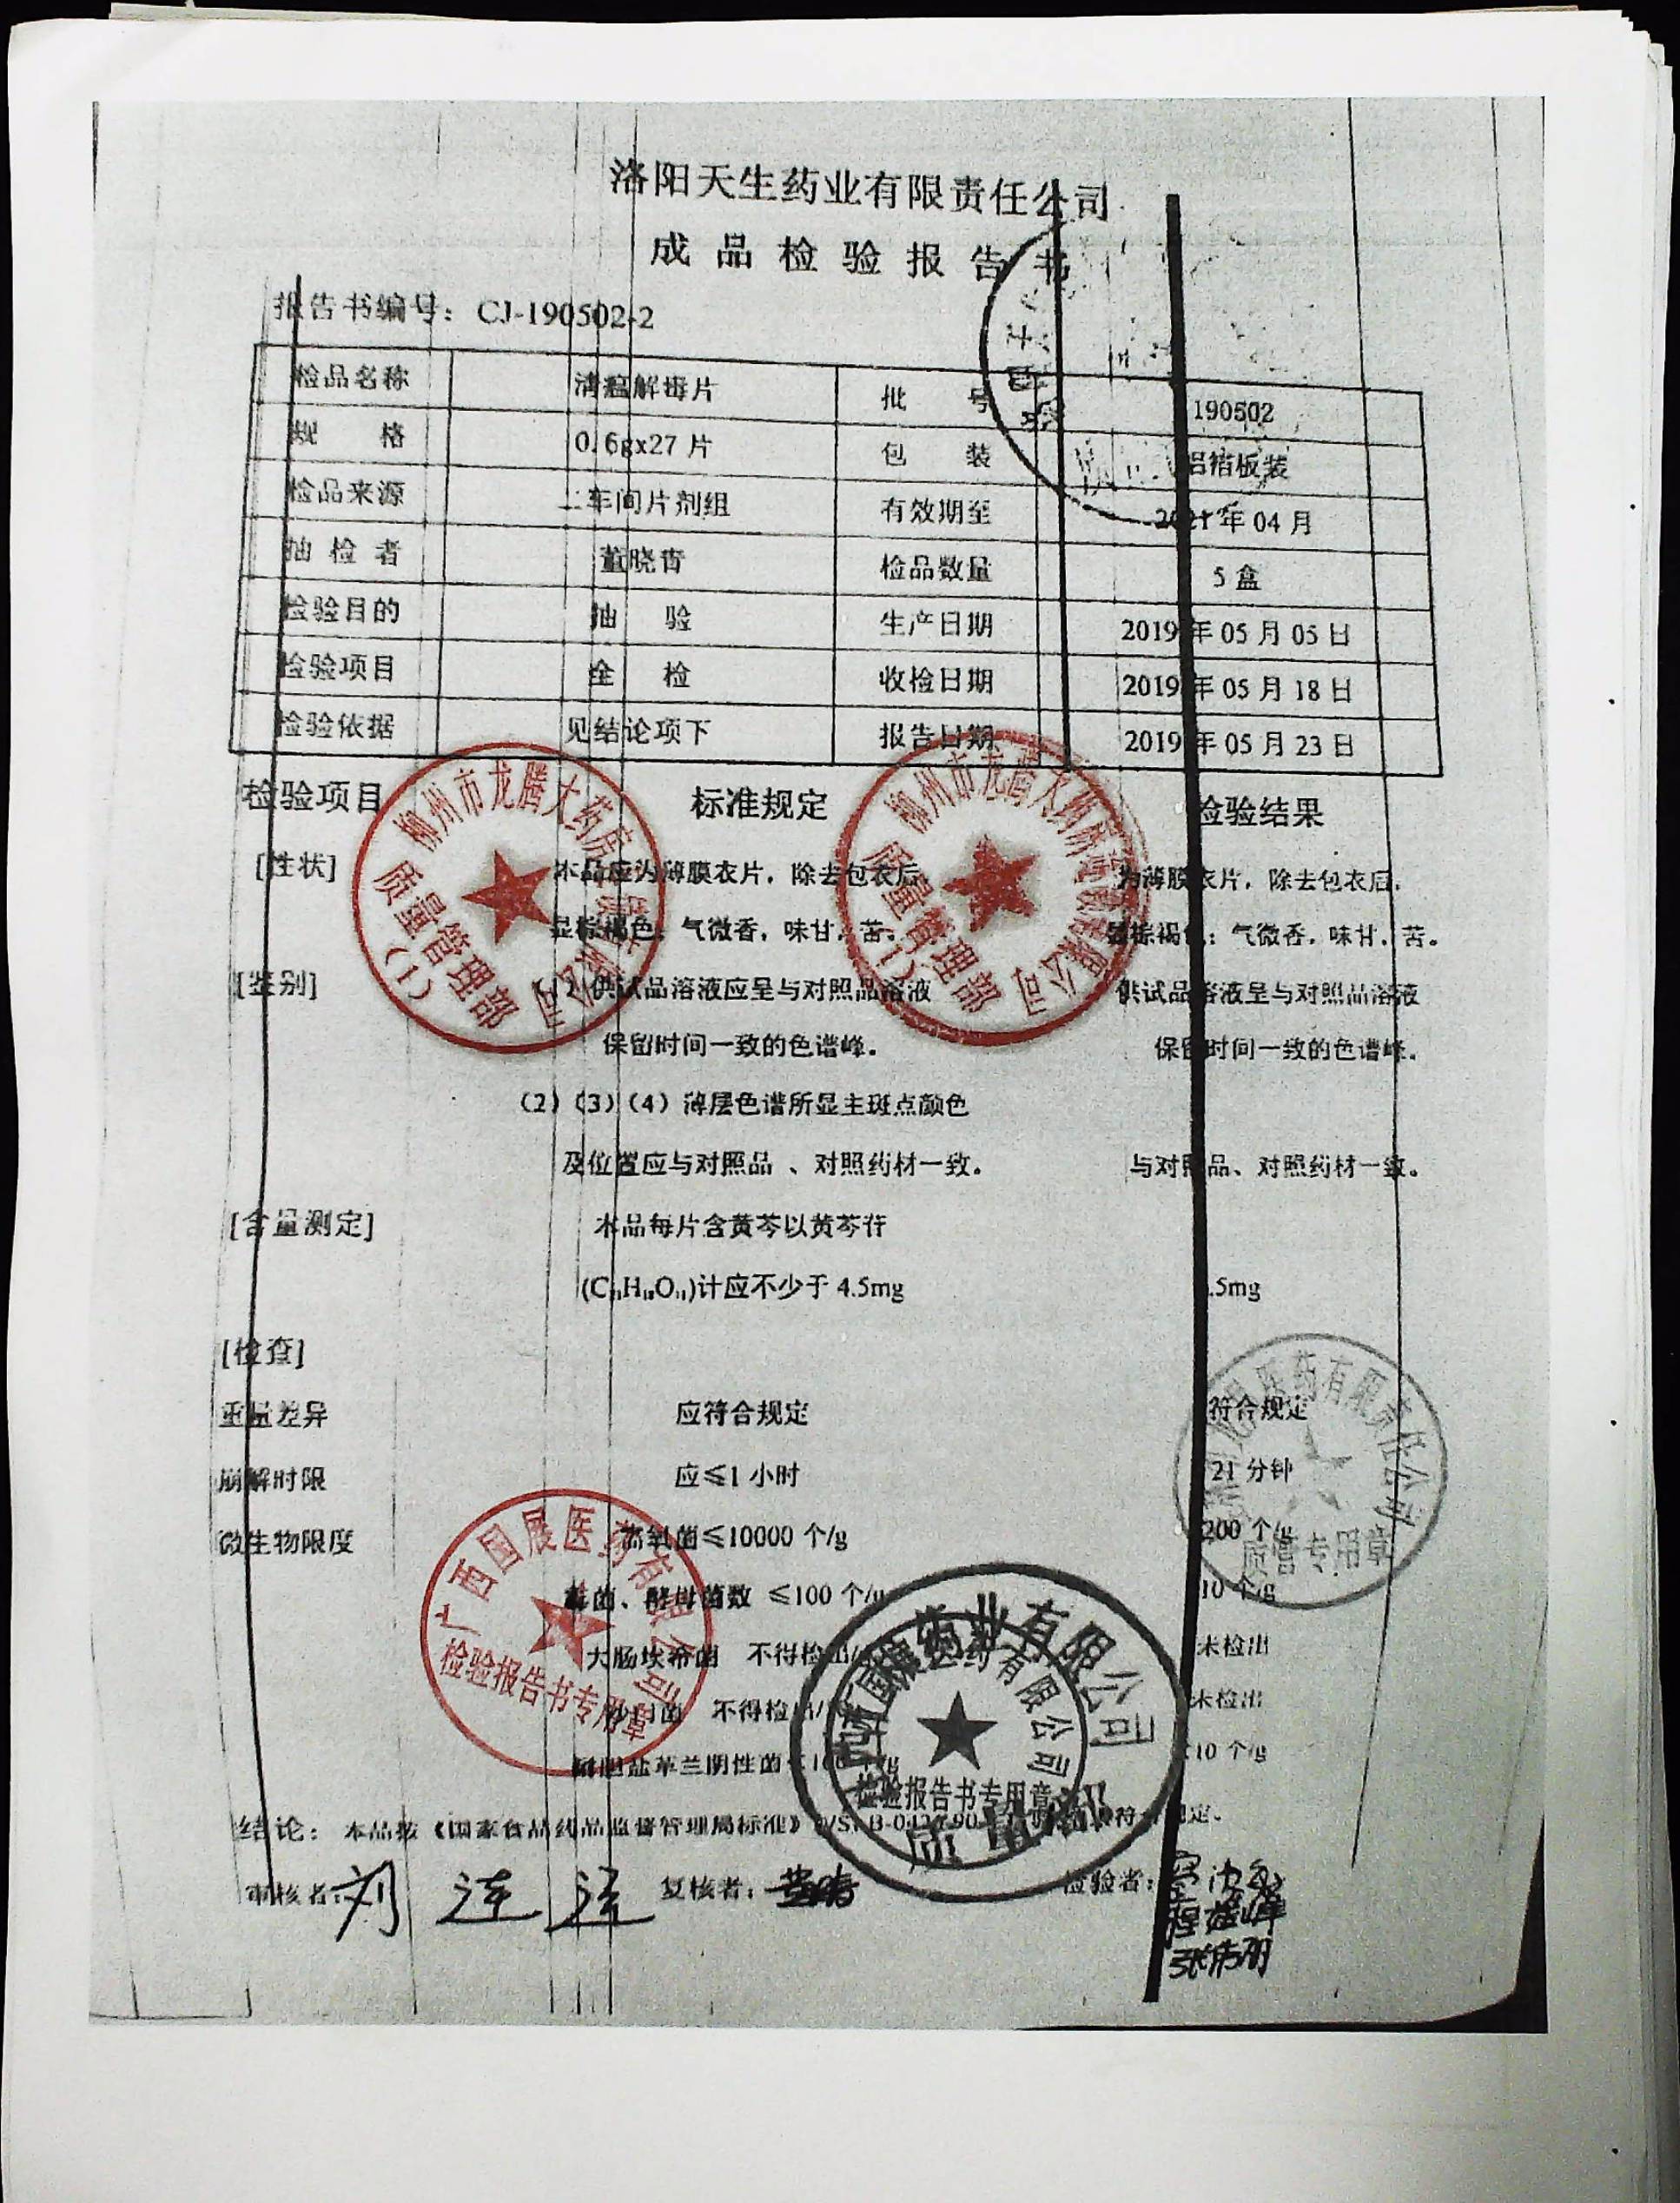 洛阳天生药业有限责任公司
成品检验报告书
报告书编号：CJ-190502-2
检品名称 清瘟解毒片 批 号 190502
规 格 0.6gx27片 包 装 铝箔板装
检品来源 二车间片剂组 有效期至 2021年04月
抽检者 董晓青 检品数量 5盒
检验目的 抽 验 生产日期 2019年05月05日
检验项目 全 检 收检日期 2019年05月18日
检验依据 见结论项下 报告日期 2019年05月23日
检验项目 标准规定 检验结果
[性状] 本品应为薄膜衣片，除去包衣后， 为薄膜衣片，除去包衣后，
显棕褐色；气微香，味甘、苦。 显棕褐色；气微香，味甘、苦。
[鉴别] （1）供试品溶液应呈与对照品溶液 供试品溶液呈与对照品溶液
保留时间一致的色谱峰。 保留时间一致的色谱峰。
（2）（3）（4）薄层色谱所显主斑点颜色
及位置应与对照品 、对照药材一致。 与对照品、对照药材一致。
[含量测定] 本品每片含黄芩以黄芩苷
(C₂₁H₁₈O₁₁)计应不少于 4.5mg .5mg
[检查]
重量差异 应符合规定 符合规定
崩解时限 应≤1小时 21分钟
微生物限度 需氧菌≤10000个/g 200个/g
霉菌、酵母菌数 ≤100个/g 10个/g
大肠埃希菌 不得检出/ 未检出
沙门菌 不得检出/ 未检出
耐胆盐革兰阴性菌 10个/g
结论：本品按《国家食品药品监督管理局标准》 符 规定。
审核者： 刘连 复核者： 检验者：
张伟
柳州市龙腾大药房
质量管理部
（1）
柳州市龙腾大药房
质量管理部
广西国展医药有限公司
检验报告书专用章
医药有限责任公司
质管专用章
药业有限公司
质量部
有限公司
检验报告书专用章